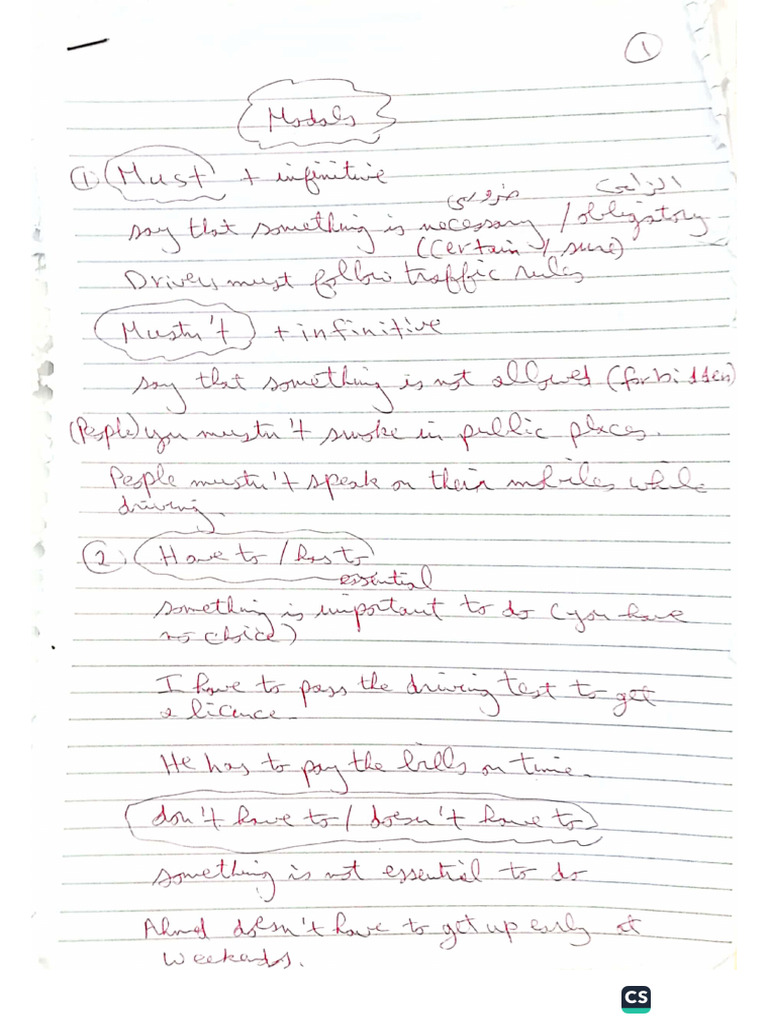 1
Modals
1) Must + infinitive
ضروري الزامي
say that something is necessary / obligatory
(certain / sure)
Drivers must follow traffic rules
Mustn't + infinitive
say that something is not allowed (forbidden)
(People) you mustn't smoke in public places.
People mustn't speak on their mobiles while
driving.
2) Have to / has to
essential
something is important to do (you have
no choice)
I have to pass the driving test to get
a licence.
He has to pay the bills on time.
don't have to / doesn't have to
something is not essential to do
Ahmed doesn't have to get up early at
weekends.
CS